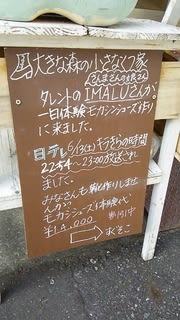 大きな森の小さなくつ家
さんまさんの娘さん
タレントのIMALUさんが
一日体験モカシンシューズ作り
に来ました。
日テレ 6/3(土) キラキラの時間
22:54〜23:00放送され
ました。
みなさんも靴作りしませ
んか。
モカシンシューズ体験代
¥14,000
あそこ